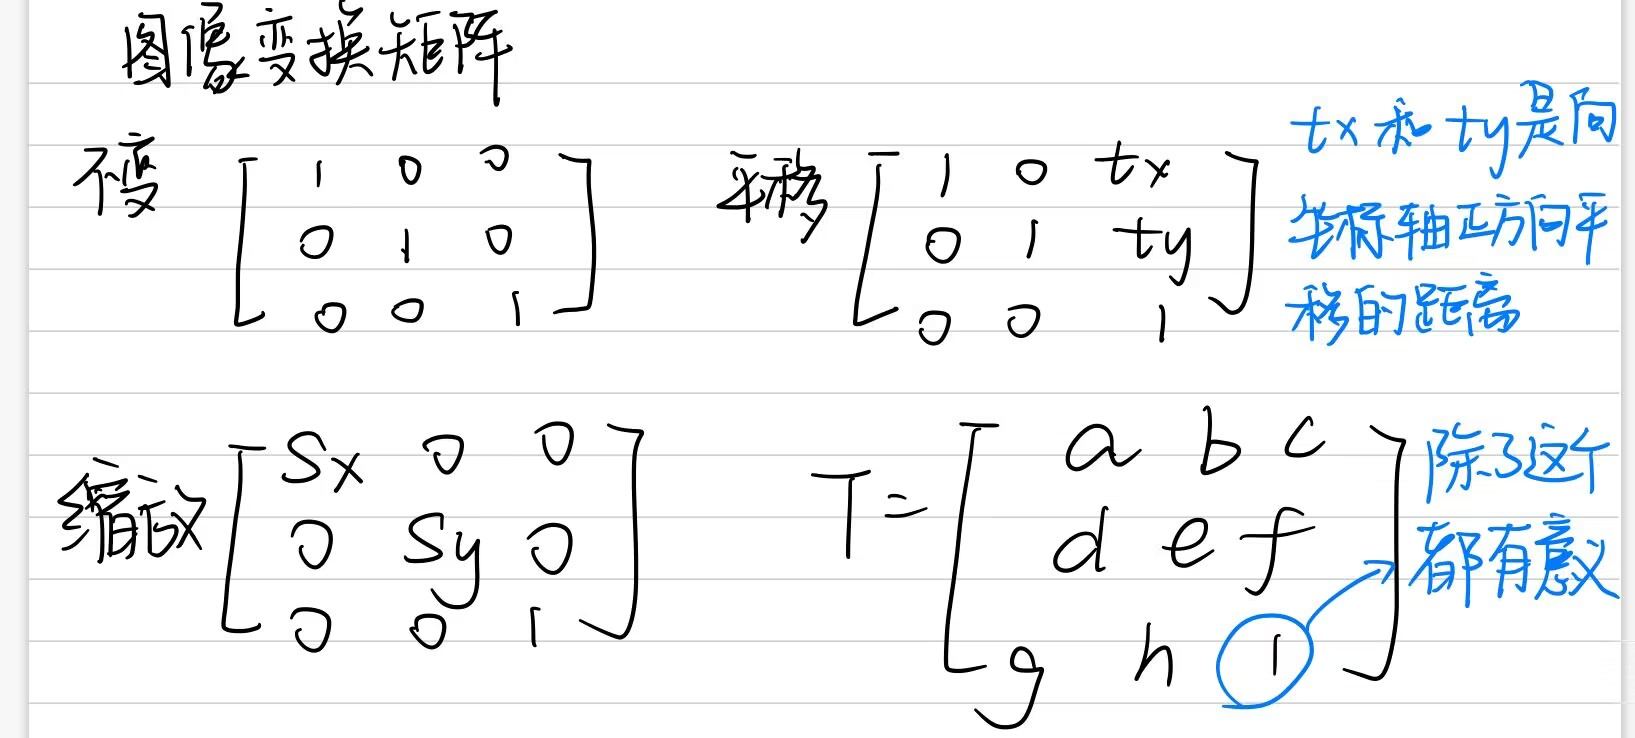 图像变换矩阵
不变 [ 1 0 0
0 1 0
0 0 1 ]
平移 [ 1 0 tx
0 1 ty
0 0 1 ]
tx 和 ty是向
坐标轴正方向平
移的距离
缩放 [ Sx 0 0
0 Sy 0
0 0 1 ]
T = [ a b c
d e f
g h 1 ]
除了这个
都有意义